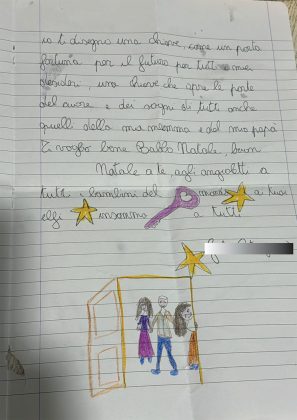 io ti disegno una chiave, come un porta
fortuna per il futuro per tutti i miei
desideri, una chiave che apre le porte
del cuore e dei sogni di tutti anche
quelli della mia mamma e del mio papà
Ti voglio bene Babbo Natale, buon
Natale a te, agli angioletti a
tutti i bambini del mondo a tuoi
elfi insomma a tutti